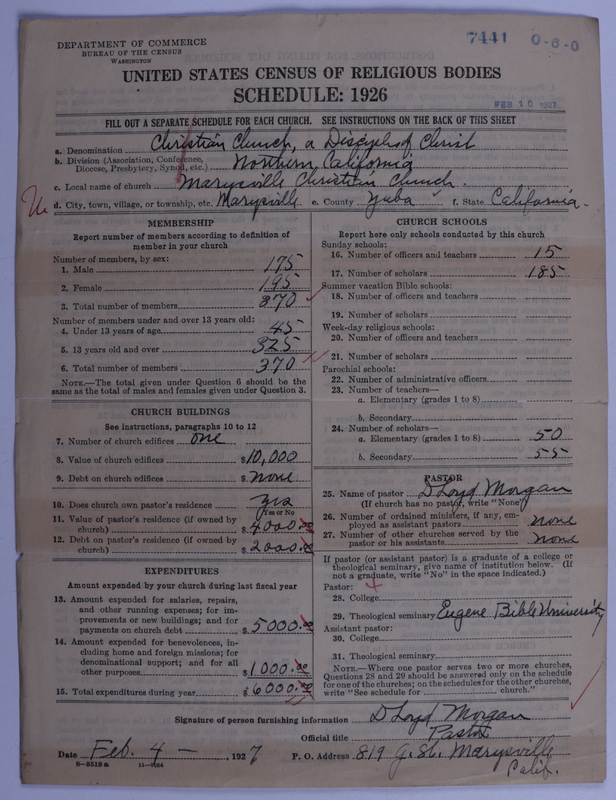 7441 0-6-0
DEPARTMENT OF COMMERCE
BUREAU OF THE CENSUS
WASHINGTON
UNITED STATES CENSUS OF RELIGIOUS BODIES
SCHEDULE: 1926
FEB 10 1927
FILL OUT A SEPARATE SCHEDULE FOR EACH CHURCH. SEE INSTRUCTIONS ON THE BACK OF THIS SHEET
a. Denomination Christian Church, a Disciple of Christ
b. Division (Association, Conference, Diocese, Presbytery, Synod, etc.) Northern California
c. Local name of church Marysville Christian Church.
d. City, town, village, or township, etc. Marysville e. County Yuba f. State California.
MEMBERSHIP
Report number of members according to definition of
member in your church
Number of members, by sex:
1. Male 175
2. Female 195
3. Total number of members 370
Number of members under and over 13 years old:
4. Under 13 years of age 45
5. 13 years old and over 325
6. Total number of members 370
NOTE.—The total given under Question 6 should be
the same as the total of males and females given under Question 3.
CHURCH BUILDINGS
See instructions, paragraphs 10 to 12
7. Number of church edifices one
8. Value of church edifices $10,000
9. Debt on church edifices $ none
10. Does church own pastor's residence yes
Yes or No
11. Value of pastor's residence (if owned by
church) $4000.00
12. Debt on pastor's residence (if owned by
church) $2000.00
EXPENDITURES
Amount expended by your church during last fiscal year
13. Amount expended for salaries, repairs,
and other running expenses; for im-
provements or new buildings; and for
payments on church debt $5000.00
14. Amount expended for benevolences, in-
cluding home and foreign missions; for
denominational support; and for all
other purposes $1000.00
15. Total expenditures during year $6000.00
CHURCH SCHOOLS
Report here only schools conducted by this church
Sunday schools:
16. Number of officers and teachers 15
17. Number of scholars 185
Summer vacation Bible schools:
18. Number of officers and teachers
19. Number of scholars
Week-day religious schools:
20. Number of officers and teachers
21. Number of scholars
Parochial schools:
22. Number of administrative officers
23. Number of teachers—
a. Elementary (grades 1 to 8)
b. Secondary
24. Number of scholars—
a. Elementary (grades 1 to 8) 50
b. Secondary 55
PASTOR
25. Name of pastor D Loyd Morgan
(If church has no pastor, write "None")
26. Number of ordained ministers, if any, em-
ployed as assistant pastors none
27. Number of other churches served by the
pastor or his assistants none
If pastor (or assistant pastor) is a graduate of a college or
theological seminary, give name of institution below. (If
not a graduate, write "No" in the space indicated.)
Pastor:
28. College
29. Theological seminary Eugene Bible University
Assistant pastor:
30. College
31. Theological seminary
NOTE.—Where one pastor serves two or more churches,
Questions 28 and 29 should be answered only on the schedule
for one of the churches; on the schedules for the other churches,
write "See schedule for church."
Signature of person furnishing information D Loyd Morgan
Official title Pastor
Date Feb. 4 — , 1927 P. O. Address 819 J. St. Marysville
Calif.
8—5518a 11—9084